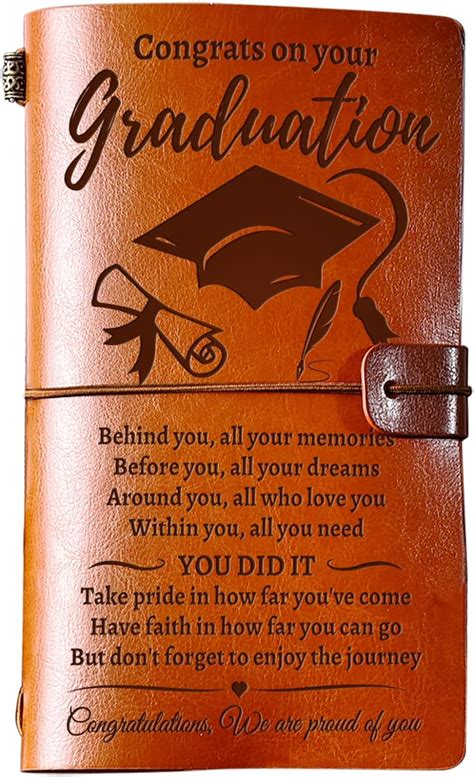 Congrats on your
Graduation
Behind you, all your memories
Before you, all your dreams
Around you, all who love you
Within you, all you need
YOU DID IT
Take pride in how far you've come
Have faith in how far you can go
But don't forget to enjoy the journey
Congratulations, We are proud of you